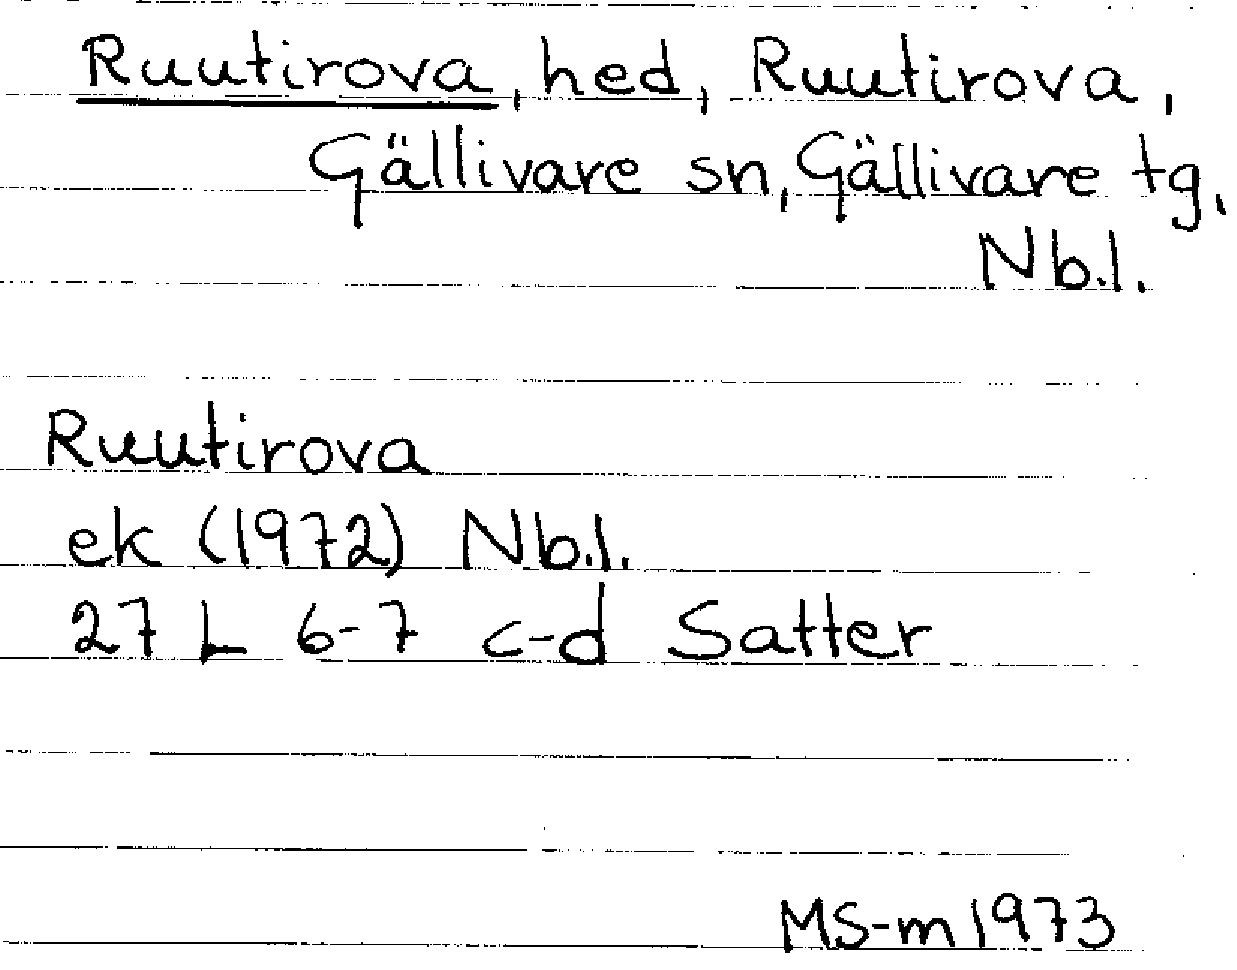 Ruutirova, hed, Ruutirova,
Gällivare sn, Gällivare tg,
Nb.l.
Ruutirova
ek (1972) Nb.l.
27 L 6-7 c-d Satter
MS-m 1973